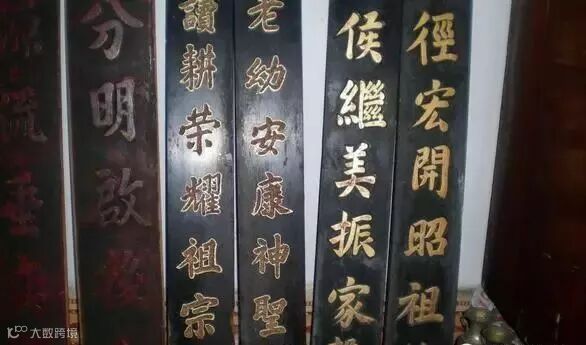 徑宏開昭祖
侯繼美振家
老幼安康神聖
讀耕荣耀祖宗
分明啟後
流垂
大数跨境